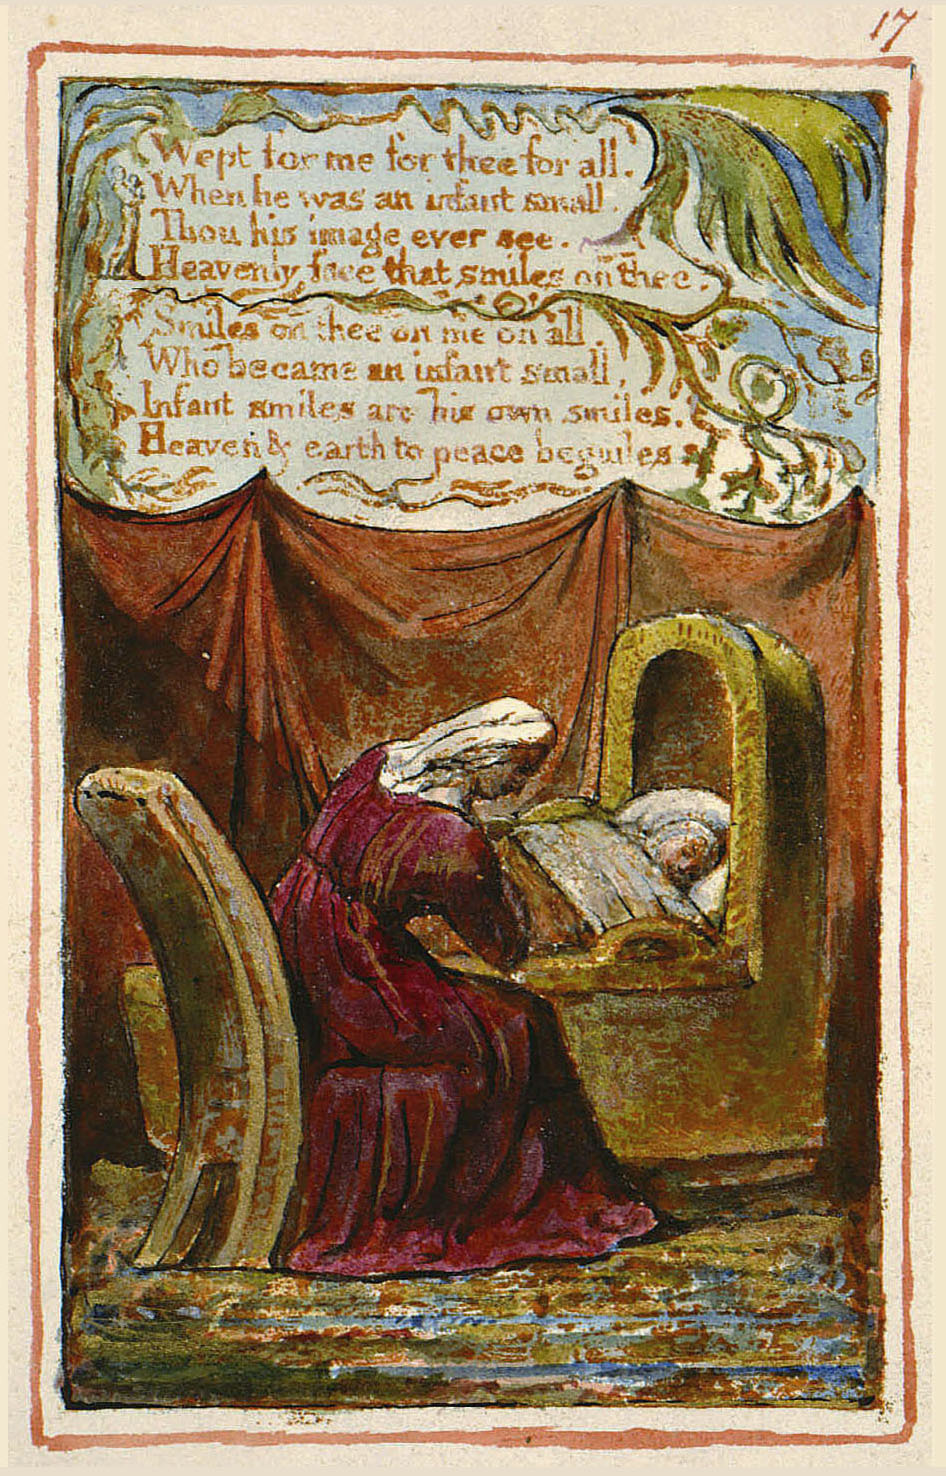 17
Wept for me for thee for all.
When he was an infant small.
Thou his image ever see.
Heavenly face that smiles on thee.
Smiles on thee on me on all.
Who became an infant small,
Infant smiles are his own smiles.
Heaven & earth to peace beguiles.